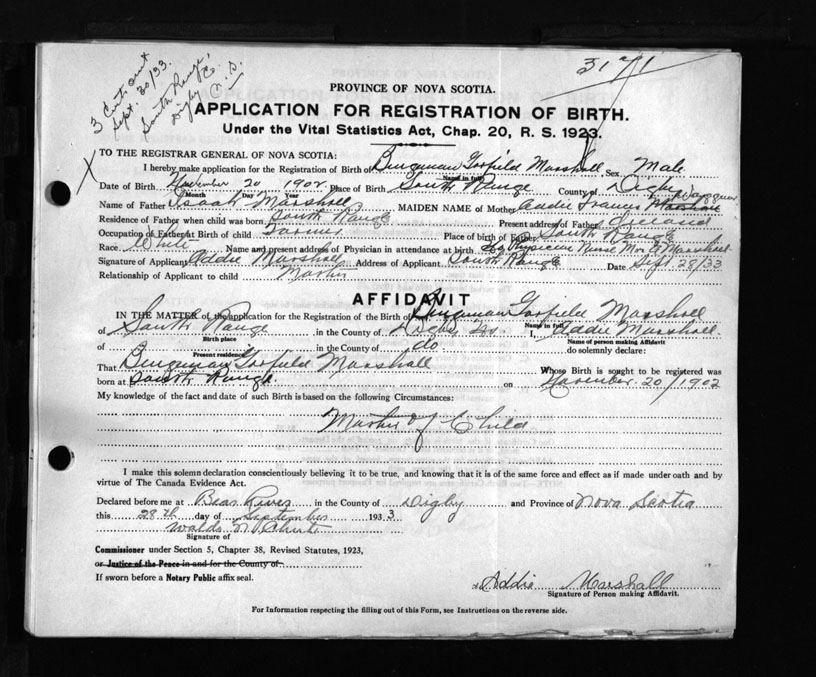 3 Cert. out
Sept. 30/33.
South Range,
Digby Co.
31 71
PROVINCE OF NOVA SCOTIA.
APPLICATION FOR REGISTRATION OF BIRTH.
Under the Vital Statistics Act, Chap. 20, R. S. 1923.
TO THE REGISTRAR GENERAL OF NOVA SCOTIA:
I hereby make application for the Registration of Birth of Burgman Garfield Marshall Sex Male
Name in full
Date of Birth November 20 1902 Place of Birth South Range County of Digby
Month Day Year
Name of Father Isaac Marshall MAIDEN NAME of Mother Addie Frances
Residence of Father when child was born South Range Present address of Father
Occupation of Father at Birth of child Farmer Place of birth of Father South Range
Race White Name and present address of Physician in attendance at birth No Physician Nurse Mrs E Marshall
Signature of Applicant Addie Marshall Address of Applicant South Range Date Sept 28/33
Relationship of Applicant to child Mother
AFFIDAVIT
IN THE MATTER of the application for the Registration of the Birth of Burgman Garfield Marshall
Name in full
of South Range in the County of Digby I, Addie Marshall
Birth place Name of person making Affidavit
of in the County of do do solemnly declare:
Present residence
That Burgman Garfield Marshall Whose Birth is sought to be registered was
born at South Range on November 20/1902
My knowledge of the fact and date of such Birth is based on the following Circumstances:
Mother of Child
I make this solemn declaration conscientiously believing it to be true, and knowing that it is of the same force and effect as if made under oath and by
virtue of The Canada Evidence Act.
Declared before me at Bear River in the County of Digby and Province of Nova Scotia
this 28th day of September 1933
Waldo N. Chute
Signature of
Commissioner under Section 5, Chapter 38, Revised Statutes, 1923,
or Justice of the Peace in and for the County of
If sworn before a Notary Public affix seal.
Addie Marshall
Signature of Person making Affidavit.
For Information respecting the filling out of this Form, see Instructions on the reverse side.